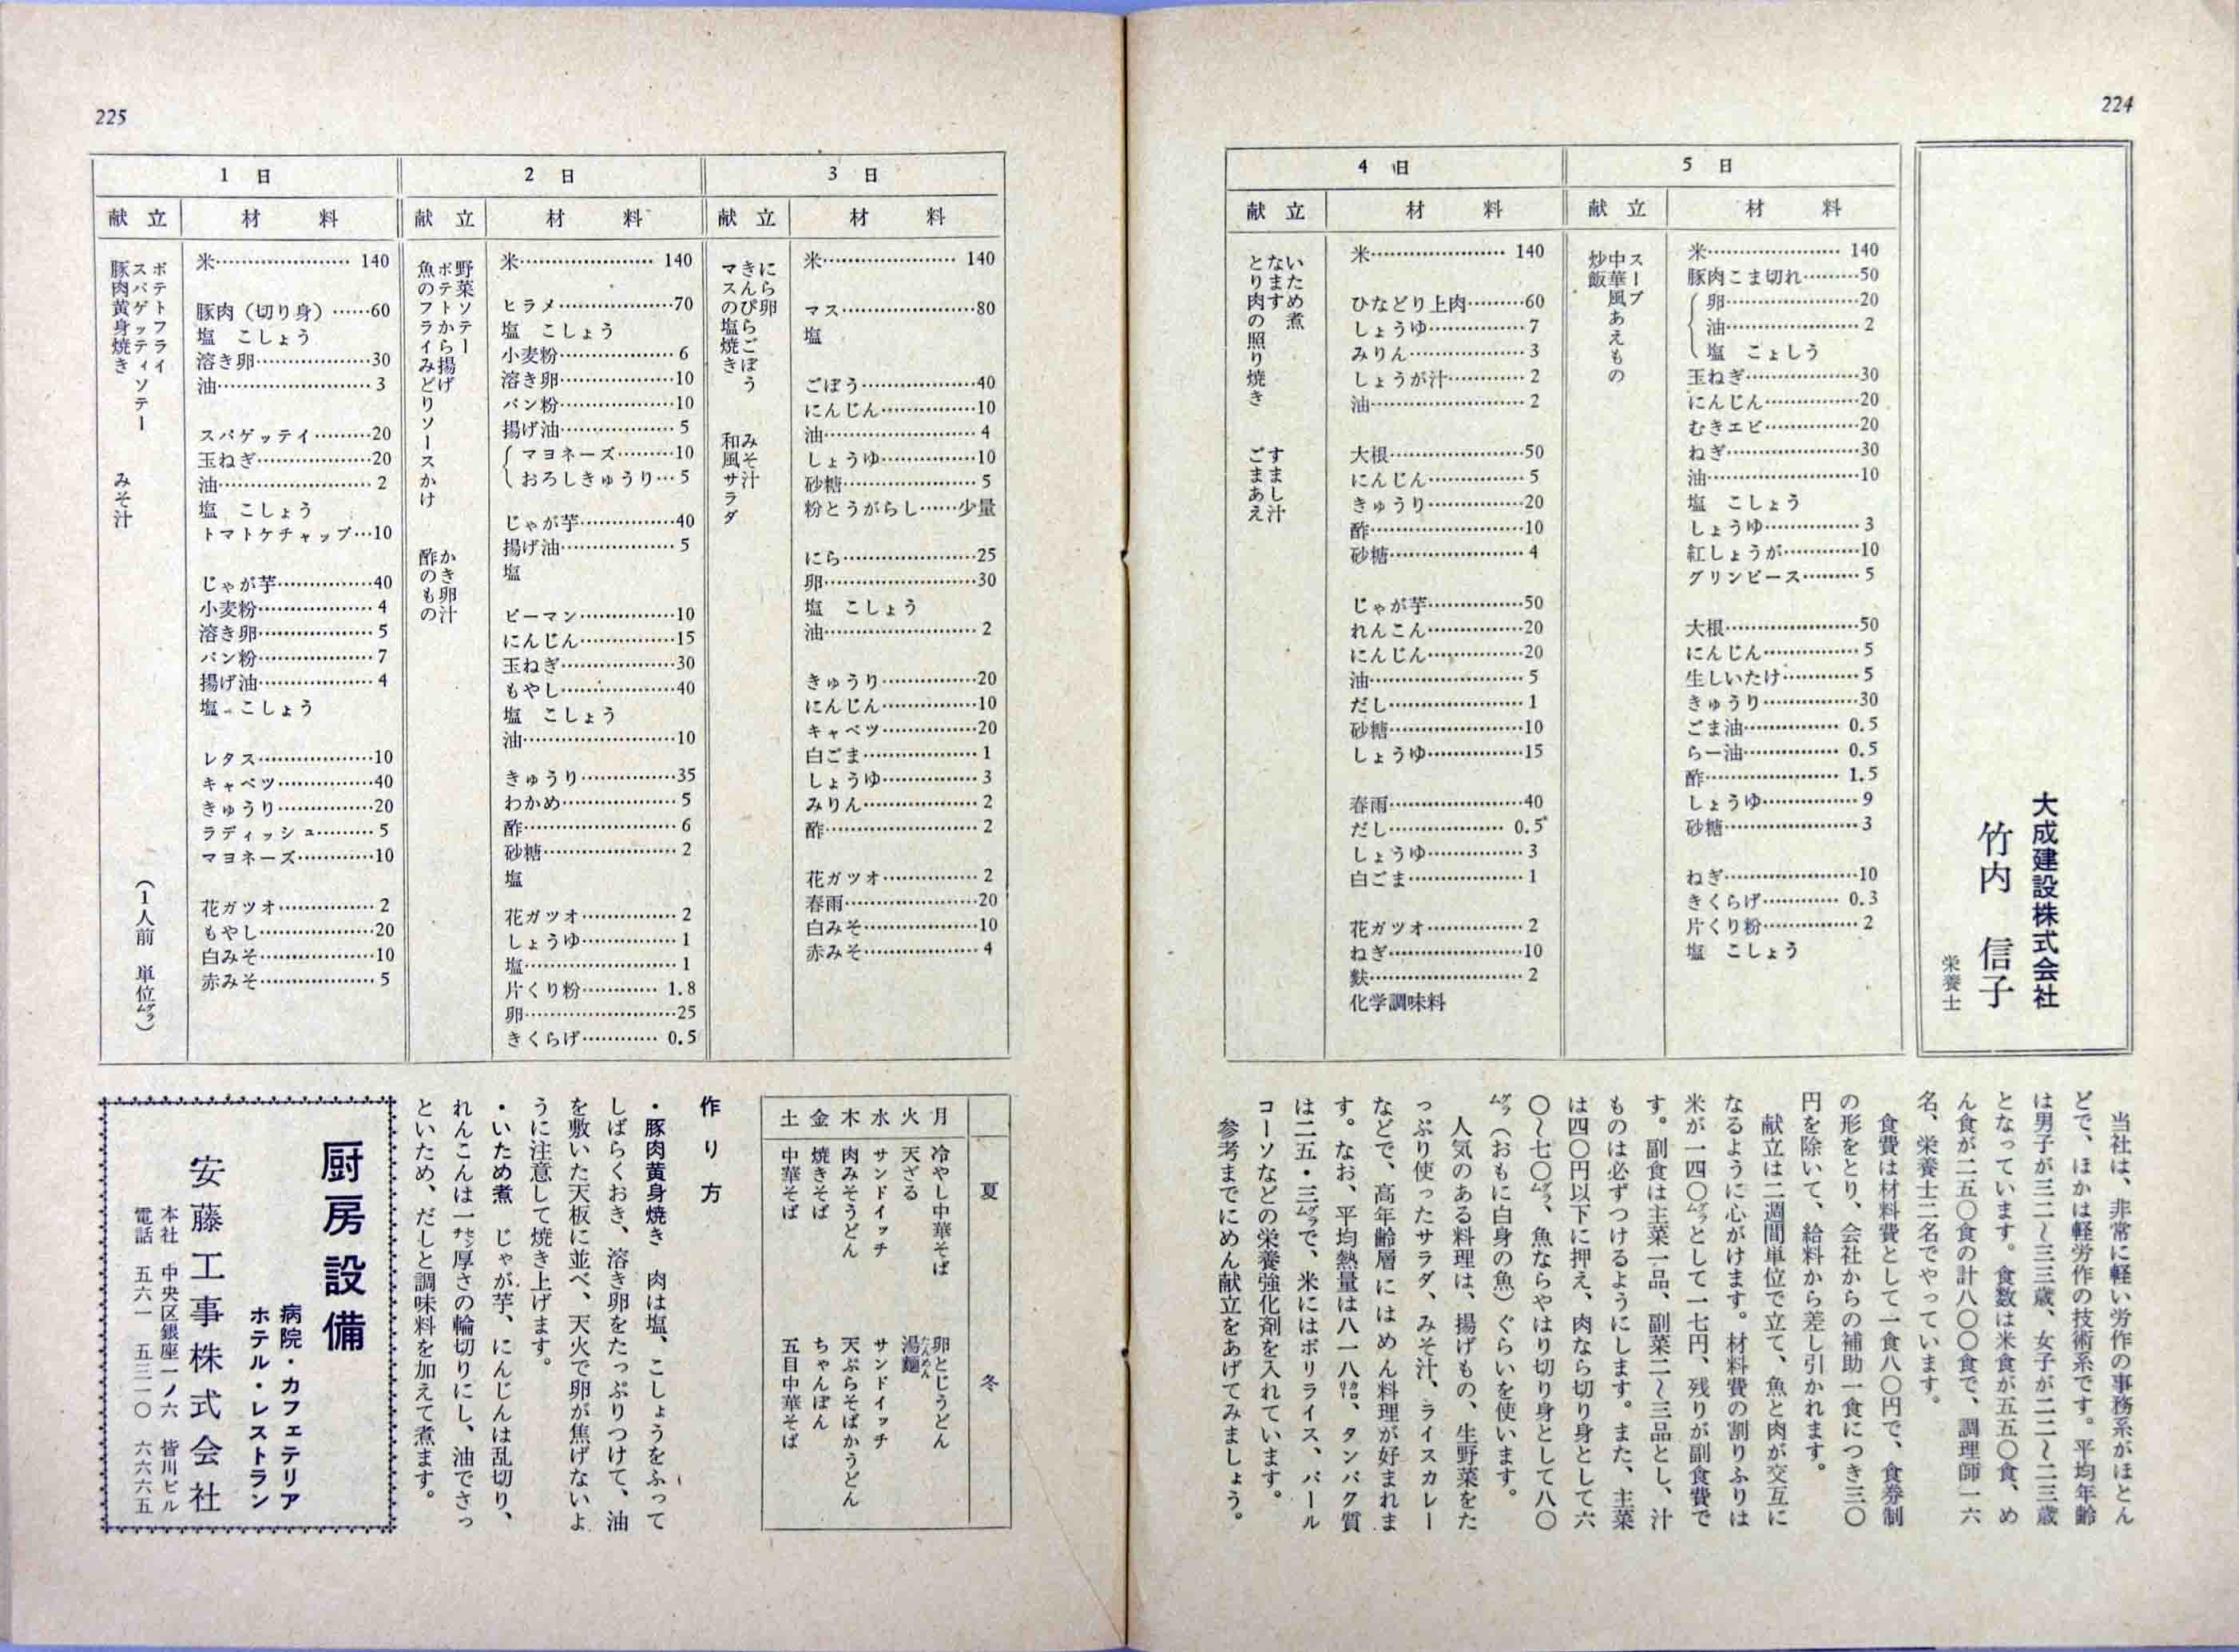 224
大成建設株式会社
竹内 信子
栄養士
当社は、非常に軽い労作の事務系がほとん
どで、ほかは軽労作の技術系です。平均年齢
は男子が三二〜三三歳、女子が二二〜二三歳
となっています。食数は米食が五五〇食、め
ん食が二五〇食の計八〇〇食で、調理師一六
名、栄養士二名でやっています。
食費は材料費として一食八〇円で、食券制
の形をとり、会社からの補助一食につき三〇
円を除いて、給料から差し引かれます。
献立は二週間単位で立て、魚と肉が交互に
なるように心がけます。材料費の割りふりは
米が一四〇グラムとして一七円、残りが副食費で
す。副食は主菜一品、副菜二〜三品とし、汁
ものは必ずつけるようにします。また、主菜
は四〇円以下に押え、肉なら切り身として六
〇〜七〇グラム、魚ならやはり切り身として八〇
グラム(おもに白身の魚)ぐらいを使います。
人気のある料理は、揚げもの、生野菜をた
っぷり使ったサラダ、みそ汁、ライスカレー
などで、高年齢層にはめん料理が好まれま
す。なお、平均熱量は八一八カロリー、タンパク質
は二五・三グラムで、米にはポリライス、パール
コーソなどの栄養強化剤を入れています。
参考までにめん献立をあげてみましょう。
5 日
献 立 材 料
スープ
中華風あえもの
炒飯
米 140
豚肉こま切れ 50
卵 20
油 2
塩 こょしう
玉ねぎ 30
にんじん 20
むきエビ 20
ねぎ 30
油 10
塩 こしょう
しょうゆ 3
紅しょうが 10
グリンピース 5
大根 50
にんじん 5
生しいたけ 5
きゅうり 30
ごま油 0.5
らー油 0.5
酢 1.5
しょうゆ 9
砂糖 3
ねぎ 10
きくらげ 0.3
片くり粉 2
塩 こしょう
4 日
献 立 材 料
いため煮
なます すまし汁
とり肉の照り焼き ごまあえ
米 140
ひなどり上肉 60
しょうゆ 7
みりん 3
しょうが汁 2
油 2
大根 50
にんじん 5
きゅうり 20
酢 10
砂糖 4
じゃが芋 50
れんこん 20
にんじん 20
油 5
だし 1
砂糖 10
しょうゆ 15
春雨 40
だし 0.5
しょうゆ 3
白ごま 1
花ガツオ 2
ねぎ 10
麩 2
化学調味料
225
3 日
献 立 材 料
にら卵
きんぴらごぼう みそ汁
マスの塩焼き 和風サラダ
米 140
マス 80
塩
ごぼう 40
にんじん 10
油 4
しょうゆ 10
砂糖 5
粉とうがらし……少量
にら 25
卵 30
塩 こしょう
油 2
きゅうり 20
にんじん 10
キャベツ 20
白ごま 1
しょうゆ 3
みりん 2
酢 2
花ガツオ 2
春雨 20
白みそ 10
赤みそ 4
2 日
献 立 材 料
野菜ソテー
ポテトから揚げ かき卵汁
魚のフライみどりソースかけ 酢のもの
米 140
ヒラメ 70
塩 こしょう
小麦粉 6
溶き卵 10
パン粉 10
揚げ油 5
マヨネーズ 10
おろしきゅうり 5
じゃが芋 40
揚げ油 5
塩
ピーマン 10
にんじん 15
玉ねぎ 30
もやし 40
塩 こしょう
油 10
きゅうり 35
わかめ 5
酢 6
砂糖 2
塩
花ガツオ 2
しょうゆ 1
塩 1
片くり粉 1.8
卵 25
きくらげ 0.5
1 日
献 立 材 料
ポテトフライ
スパゲッティソテー
豚肉黄身焼き みそ汁
(1人前 単位グラム)
米 140
豚肉(切り身) 60
塩 こしょう
溶き卵 30
油 3
スパゲッテイ 20
玉ねぎ 20
油 2
塩 こしょう
トマトケチャップ 10
じゃが芋 40
小麦粉 4
溶き卵 5
パン粉 7
揚げ油 4
塩 こしょう
レタス 10
キャベツ 40
きゅうり 20
ラディッシュ 5
マヨネーズ 10
花ガツオ 2
もやし 20
白みそ 10
赤みそ 5
夏 冬
月 冷やし中華そば 卵とじうどん
火 天ざる 湯麺 たんめん
水 サンドイッチ サンドイッチ
木 肉みそうどん 天ぷらそばかうどん
金 焼きそば ちゃんぽん
土 中華そば 五目中華そば
作り方
・豚肉黄身焼き 肉は塩、こしょうをふって
しばらくおき、溶き卵をたっぷりつけて、油
を敷いた天板に並べ、天火で卵が焦げないよ
うに注意して焼き上げます。
・いため煮 じゃが芋、にんじんは乱切り、
れんこんは一センチ厚さの輪切りにし、油でさっ
といため、だしと調味料を加えて煮ます。
厨房設備
病院・カフェテリア
ホテル・レストラン
安藤工事株式会社
本社 中央区銀座一ノ六 皆川ビル
電話 五六一 五三一〇 六六六五